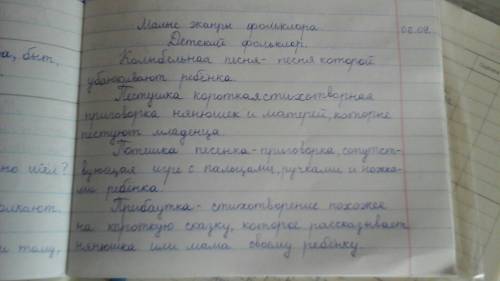 Малые жанры фольклора
02.02.
Детский фольклор.
Колыбельная песня- песня которой
убаюкивают ребёнка.
Пестушка короткая стихотворная
приговорка нянюшек и матерей, которые
пестуют младенца.
Потешка песенка-приговорка, сопутст-
вующая игре с пальцами, ручками и ножка-
ми ребёнка.
Прибаутка- стихотворение похожее
на короткую сказку, которое рассказывает
нянюшка или мама своему ребёнку.
а, быт,
но идёт?
олкают.
и тому,